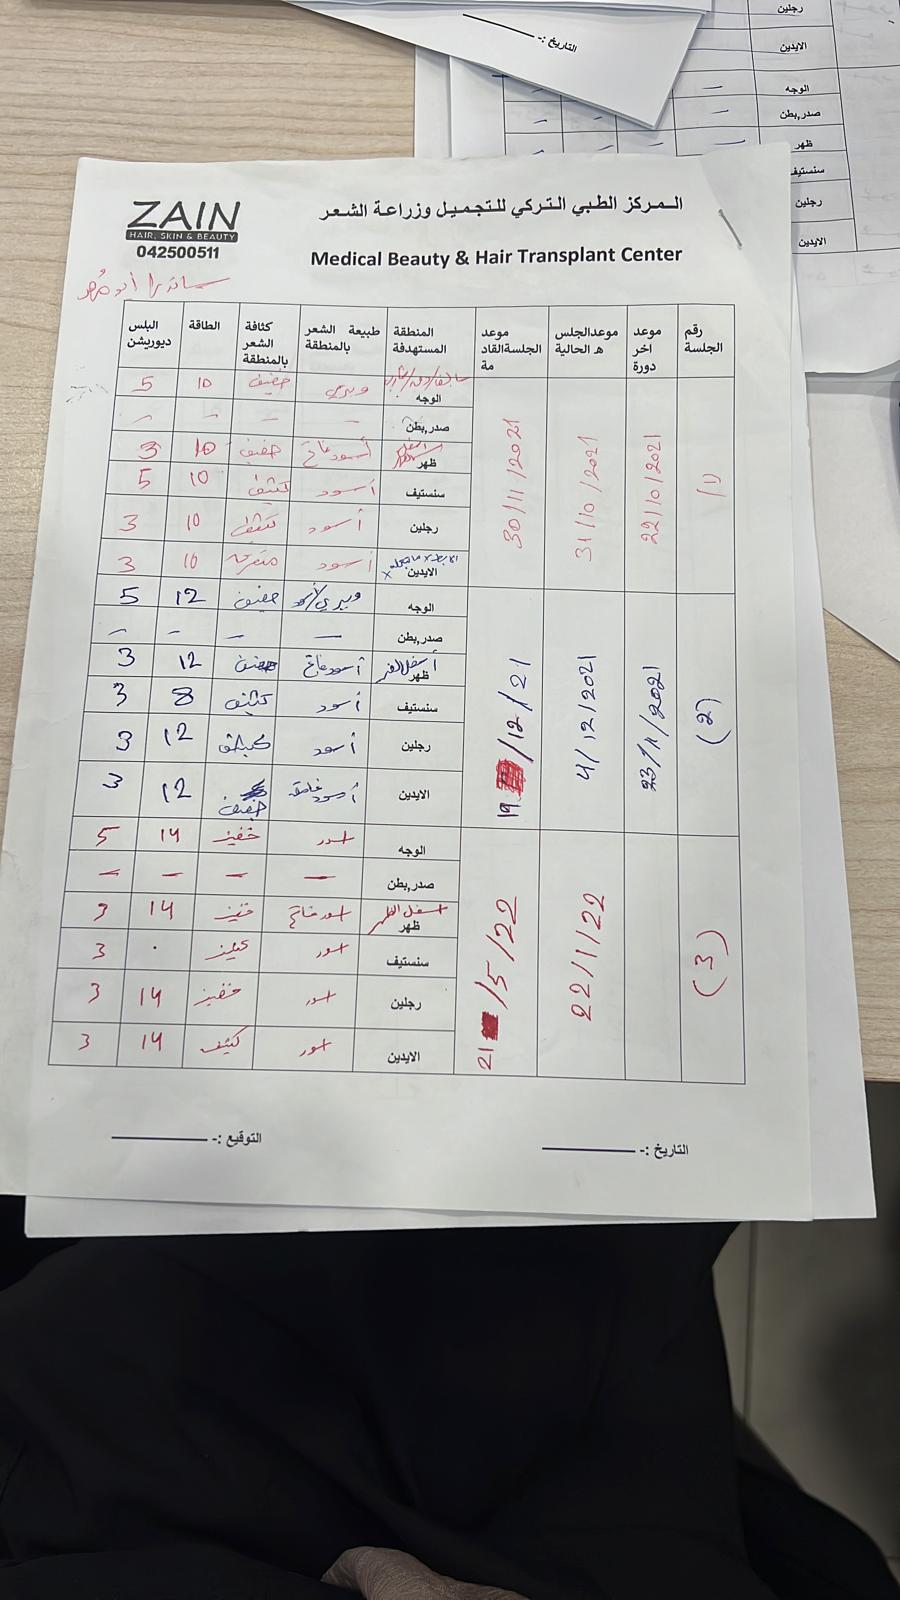 التاريخ :-
رجلين
الايدين
الوجه
صدر,بطن
ظهر
سنستيف
رجلين
الايدين
ZAIN
HAIR, SKIN & BEAUTY
042500511
المركز الطبي التركي للتجميل وزراعة الشعر
Medical Beauty & Hair Transplant Center
ساندرا أبو
رقم الجلسة موعد اخر دورة موعدالجلس ه الحالية موعد الجلسةالقاد مة المنطقة المستهدفة طبيعة الشعر بالمنطقة كثافة الشعر بالمنطقة الطاقة البلس ديوريشن
(1) 22/10/2021 31/10/2021 30/11/2021
الوجه وبري خفيف 10 5
صدر,بطن – – – –
ظهر أسود فاتح خفيف 10 3
سنستيف أسود كثيف 10 5
رجلين أسود كثيف 10 3
الايدين أسود 10 3
(2) 23/11/2021 4/12/2021 19/12/21
الوجه وبري/أسود خفيف 12 5
صدر,بطن – – – –
أسفل الظهر ظهر أسود فاتح خفيف 12 3
سنستيف أسود كثيف 8 3
رجلين أسود 12 3
الايدين أسود خفيف 12 3
(3) 22/1/22 21/5/22
الوجه اسود خفيف 14 5
صدر,بطن – – – –
اسفل الظهر ظهر اسود فاتح خفيف 14 3
سنستيف اسود 3
رجلين اسود خفيف 14 3
الايدين اسود كثيف 14 3
التاريخ :-
التوقيع :-